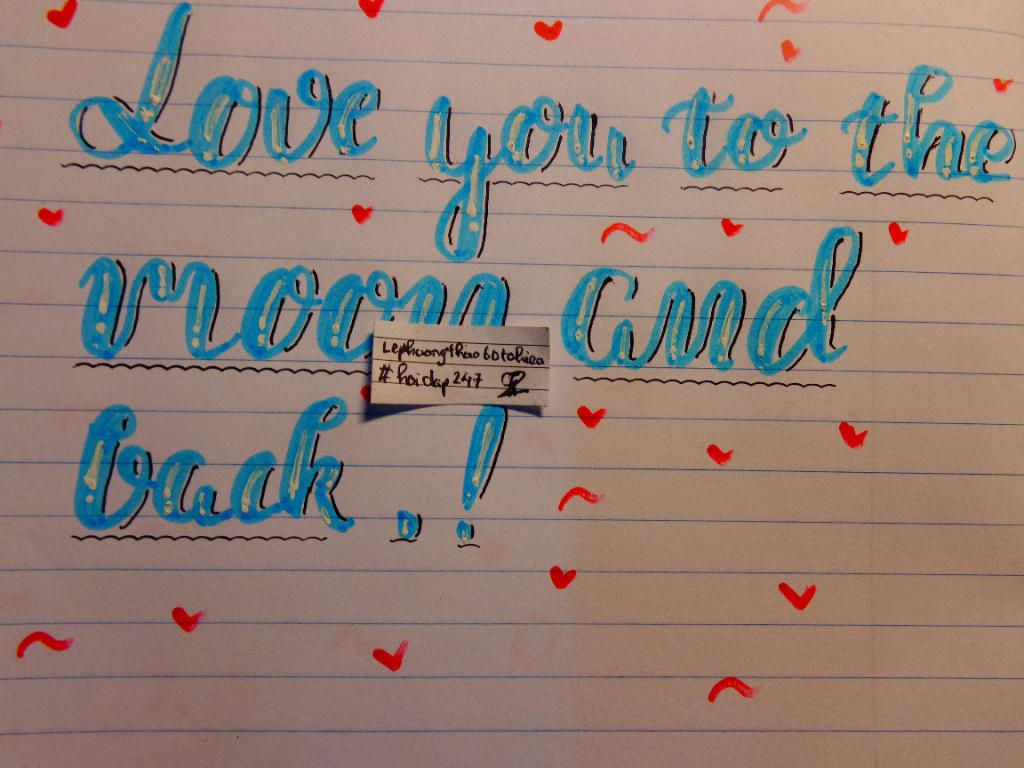 Love you to the
moon and
Lephuongthao6btohiea
#hoidap247
back .!